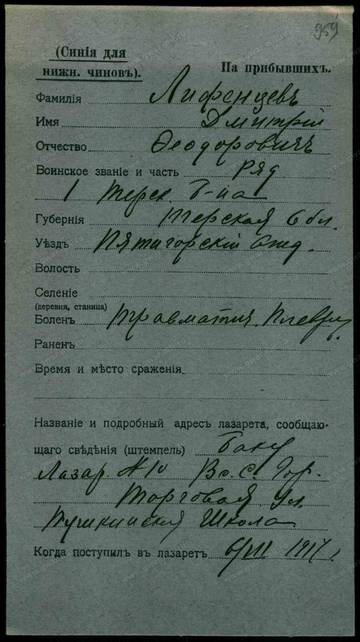 959
(Синія для
нижн. чиновъ).
На прибывшихъ.
Фамилія Лифенцевъ
Имя Дмитрій
Отчество Ѳеодоровичъ
Воинское званіе и часть Ряд
1 Терск Б-на
Губернія Терская обл.
Уѣздъ Пятигорскій Отд.
Волость
Селеніе
(деревня, станица)
Боленъ травматич. плеврит
Раненъ
Время и мѣсто сраженія
Названіе и подробный адресъ лазарета, сообщаю-
щаго свѣдѣнія (штемпель) Баку
Лазар. №10 Вс. С. Гор.
Торговая ул.
Пушкинская Школа
Когда поступилъ въ лазаретъ 1917 г